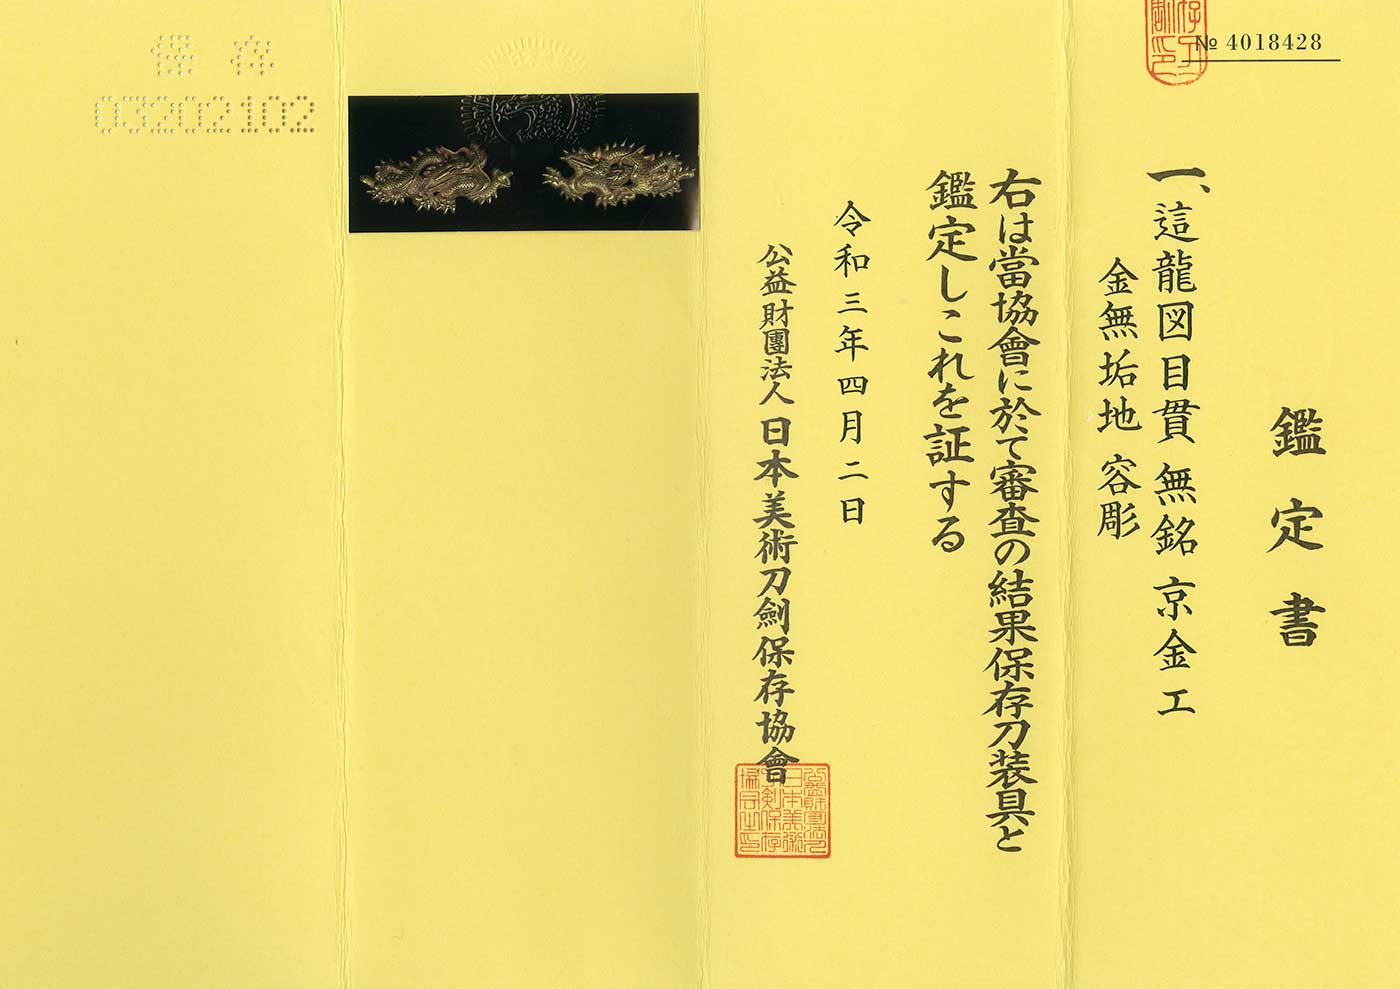 № 4018428
鑑定書
一、這龍図目貫 無銘 京金工
金無垢地 容彫
右は當協會に於て審査の結果保存刀装具と
鑑定しこれを証する
令和三年四月二日
公益財團法人 日本美術刀劍保存協會
保存
03202102